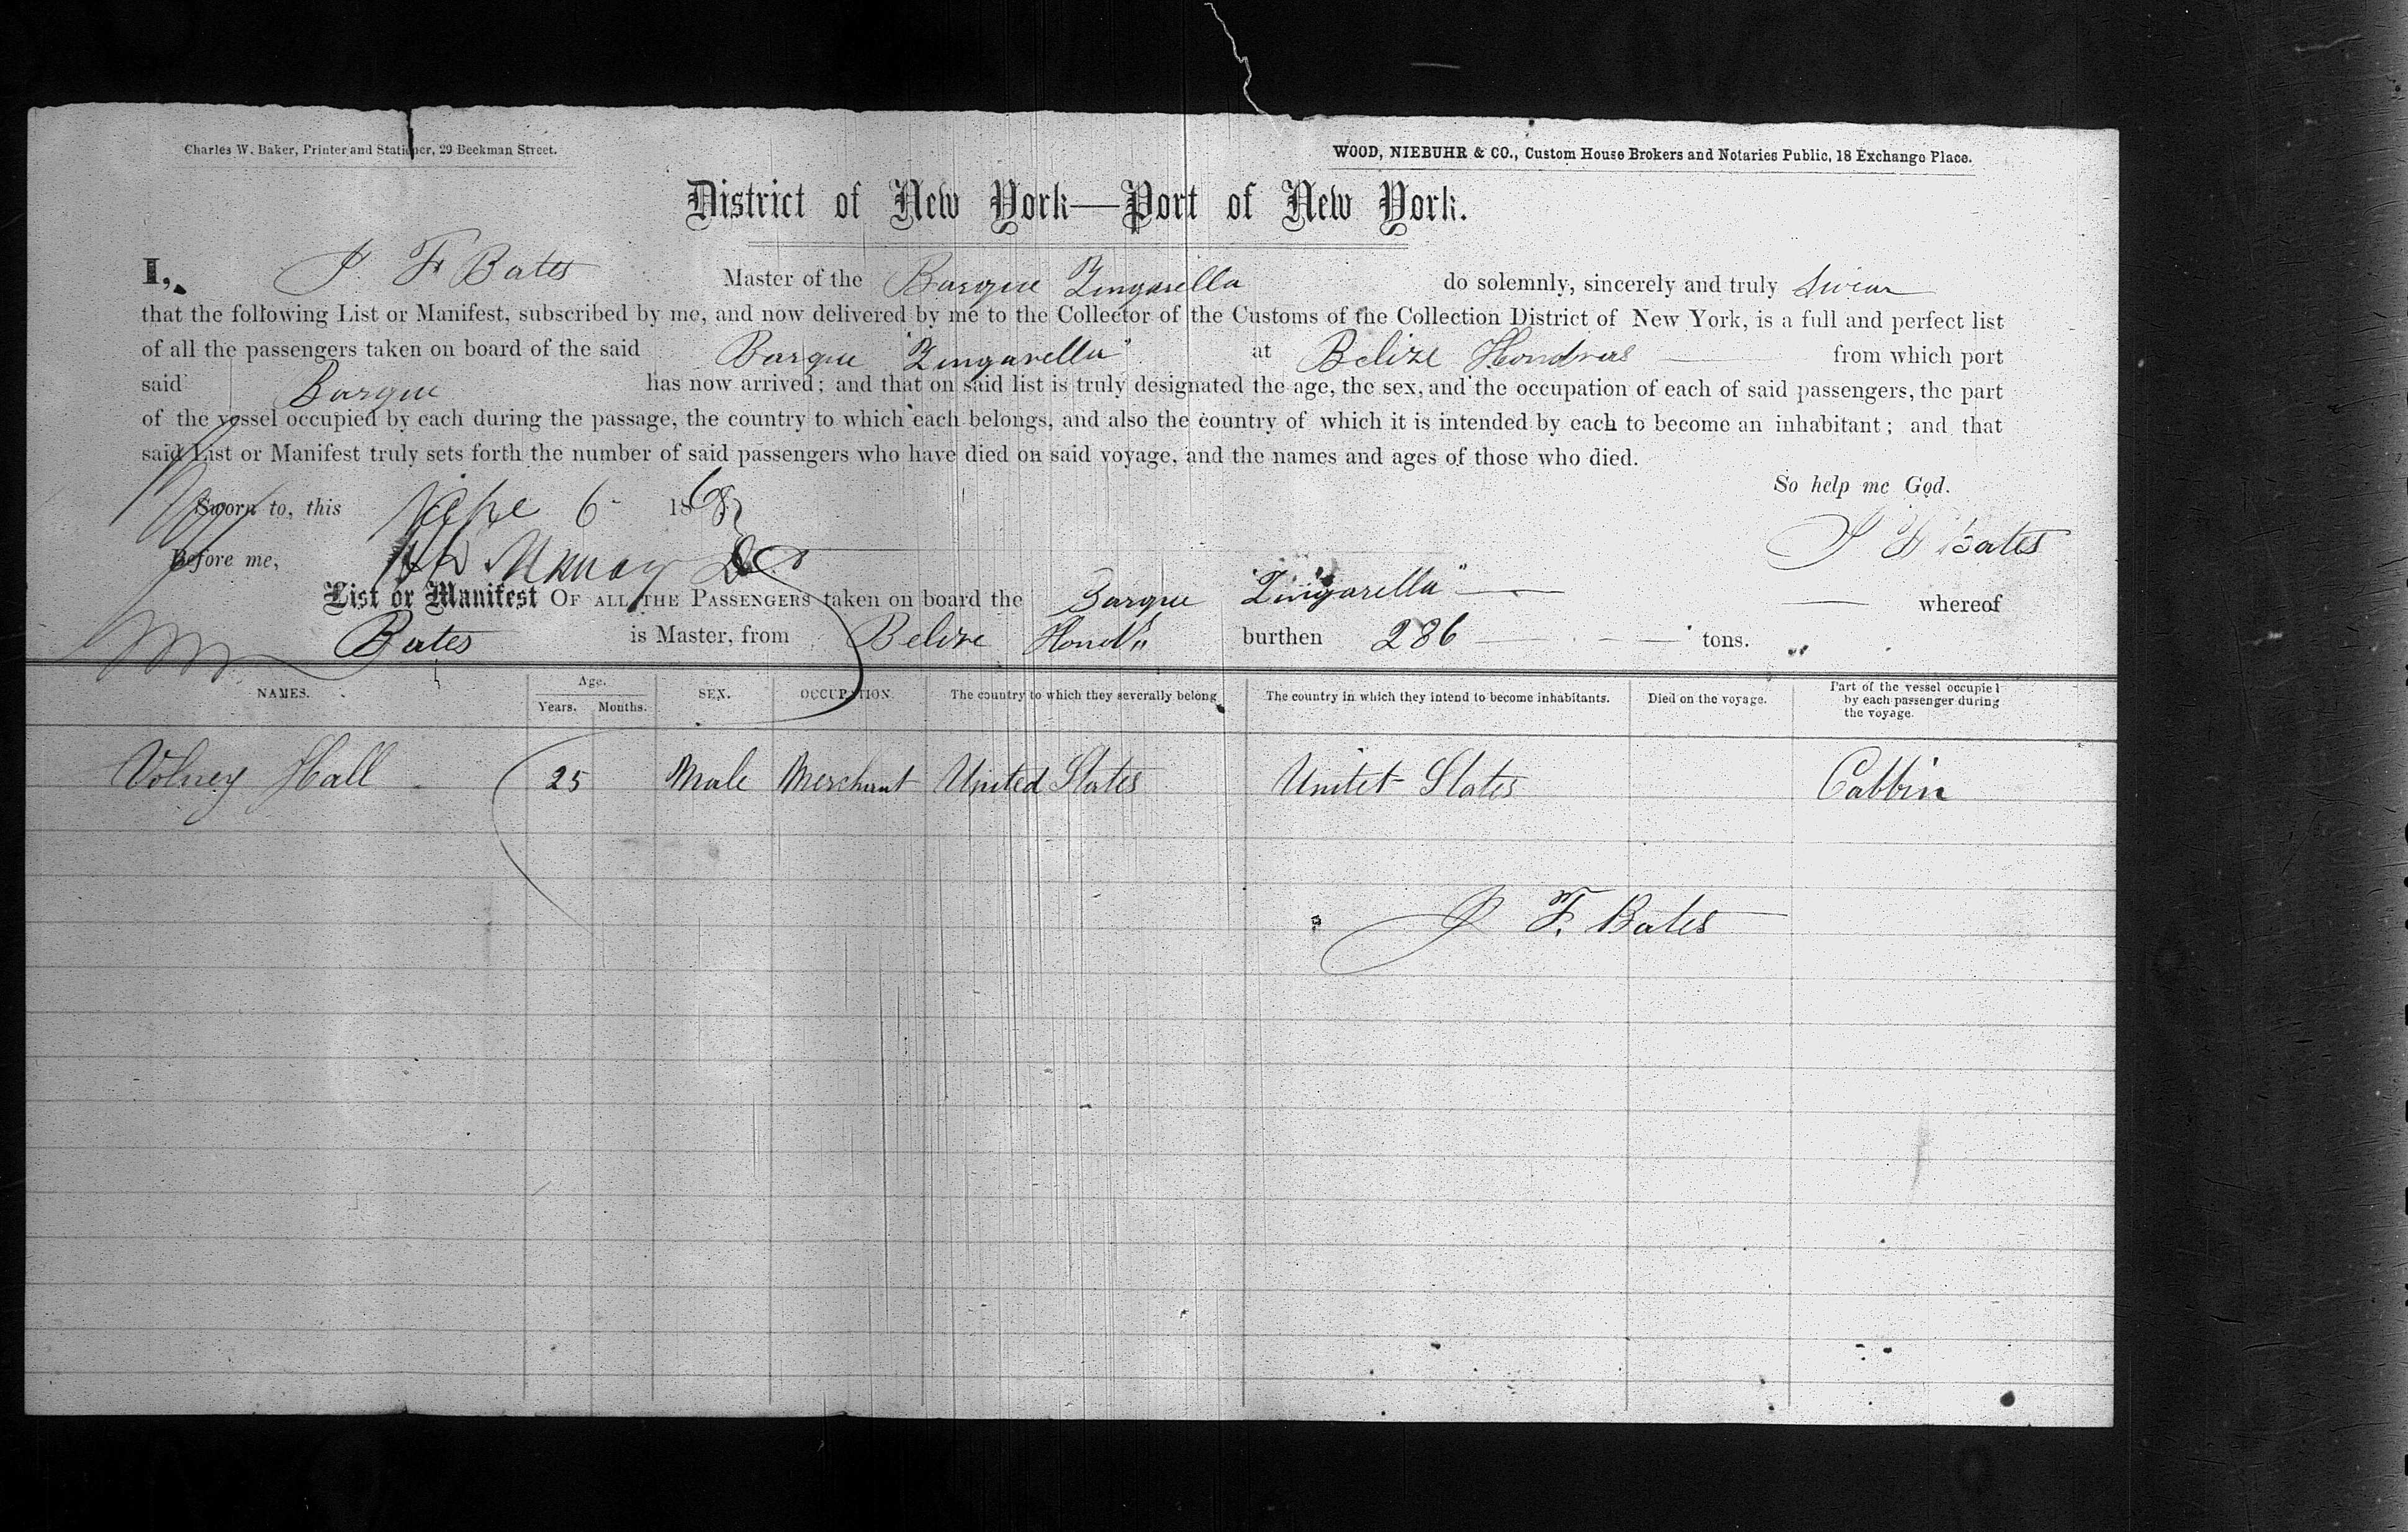 Charles W. Baker, Printer and Stationer, 29 Beekman Street.
WOOD, NIEBUHR & CO., Custom House Brokers and Notaries Public, 18 Exchange Place.
District of New York—Port of New York.
I, J. F. Bates Master of the Barque Zingarella do solemnly, sincerely and truly swear
that the following List or Manifest, subscribed by me, and now delivered by me to the Collector of the Customs of the Collection District of New York, is a full and perfect list
of all the passengers taken on board of the said Barque "Zingarella" at Belize Hondras from which port
said Barque has now arrived; and that on said list is truly designated the age, the sex, and the occupation of each of said passengers, the part
of the vessel occupied by each during the passage, the country to which each belongs, and also the country of which it is intended by each to become an inhabitant; and that
said List or Manifest truly sets forth the number of said passengers who have died on said voyage, and the names and ages of those who died.
So help me God.
Sworn to, this 6 1868
J F Bates
Before me,
List or Manifest OF ALL THE PASSENGERS taken on board the Barque "Zingarella" whereof
Bates is Master, from Belize burthen 286 tons.
NAMES. Age. Years. Months. SEX. OCCUPATION. The country to which they severally belong. The country in which they intend to become inhabitants. Died on the voyage. Part of the vessel occupied by each passenger during the voyage.
Volney Hall 25 Male Merchant United States Unitet States Cabbin
J F. Bates